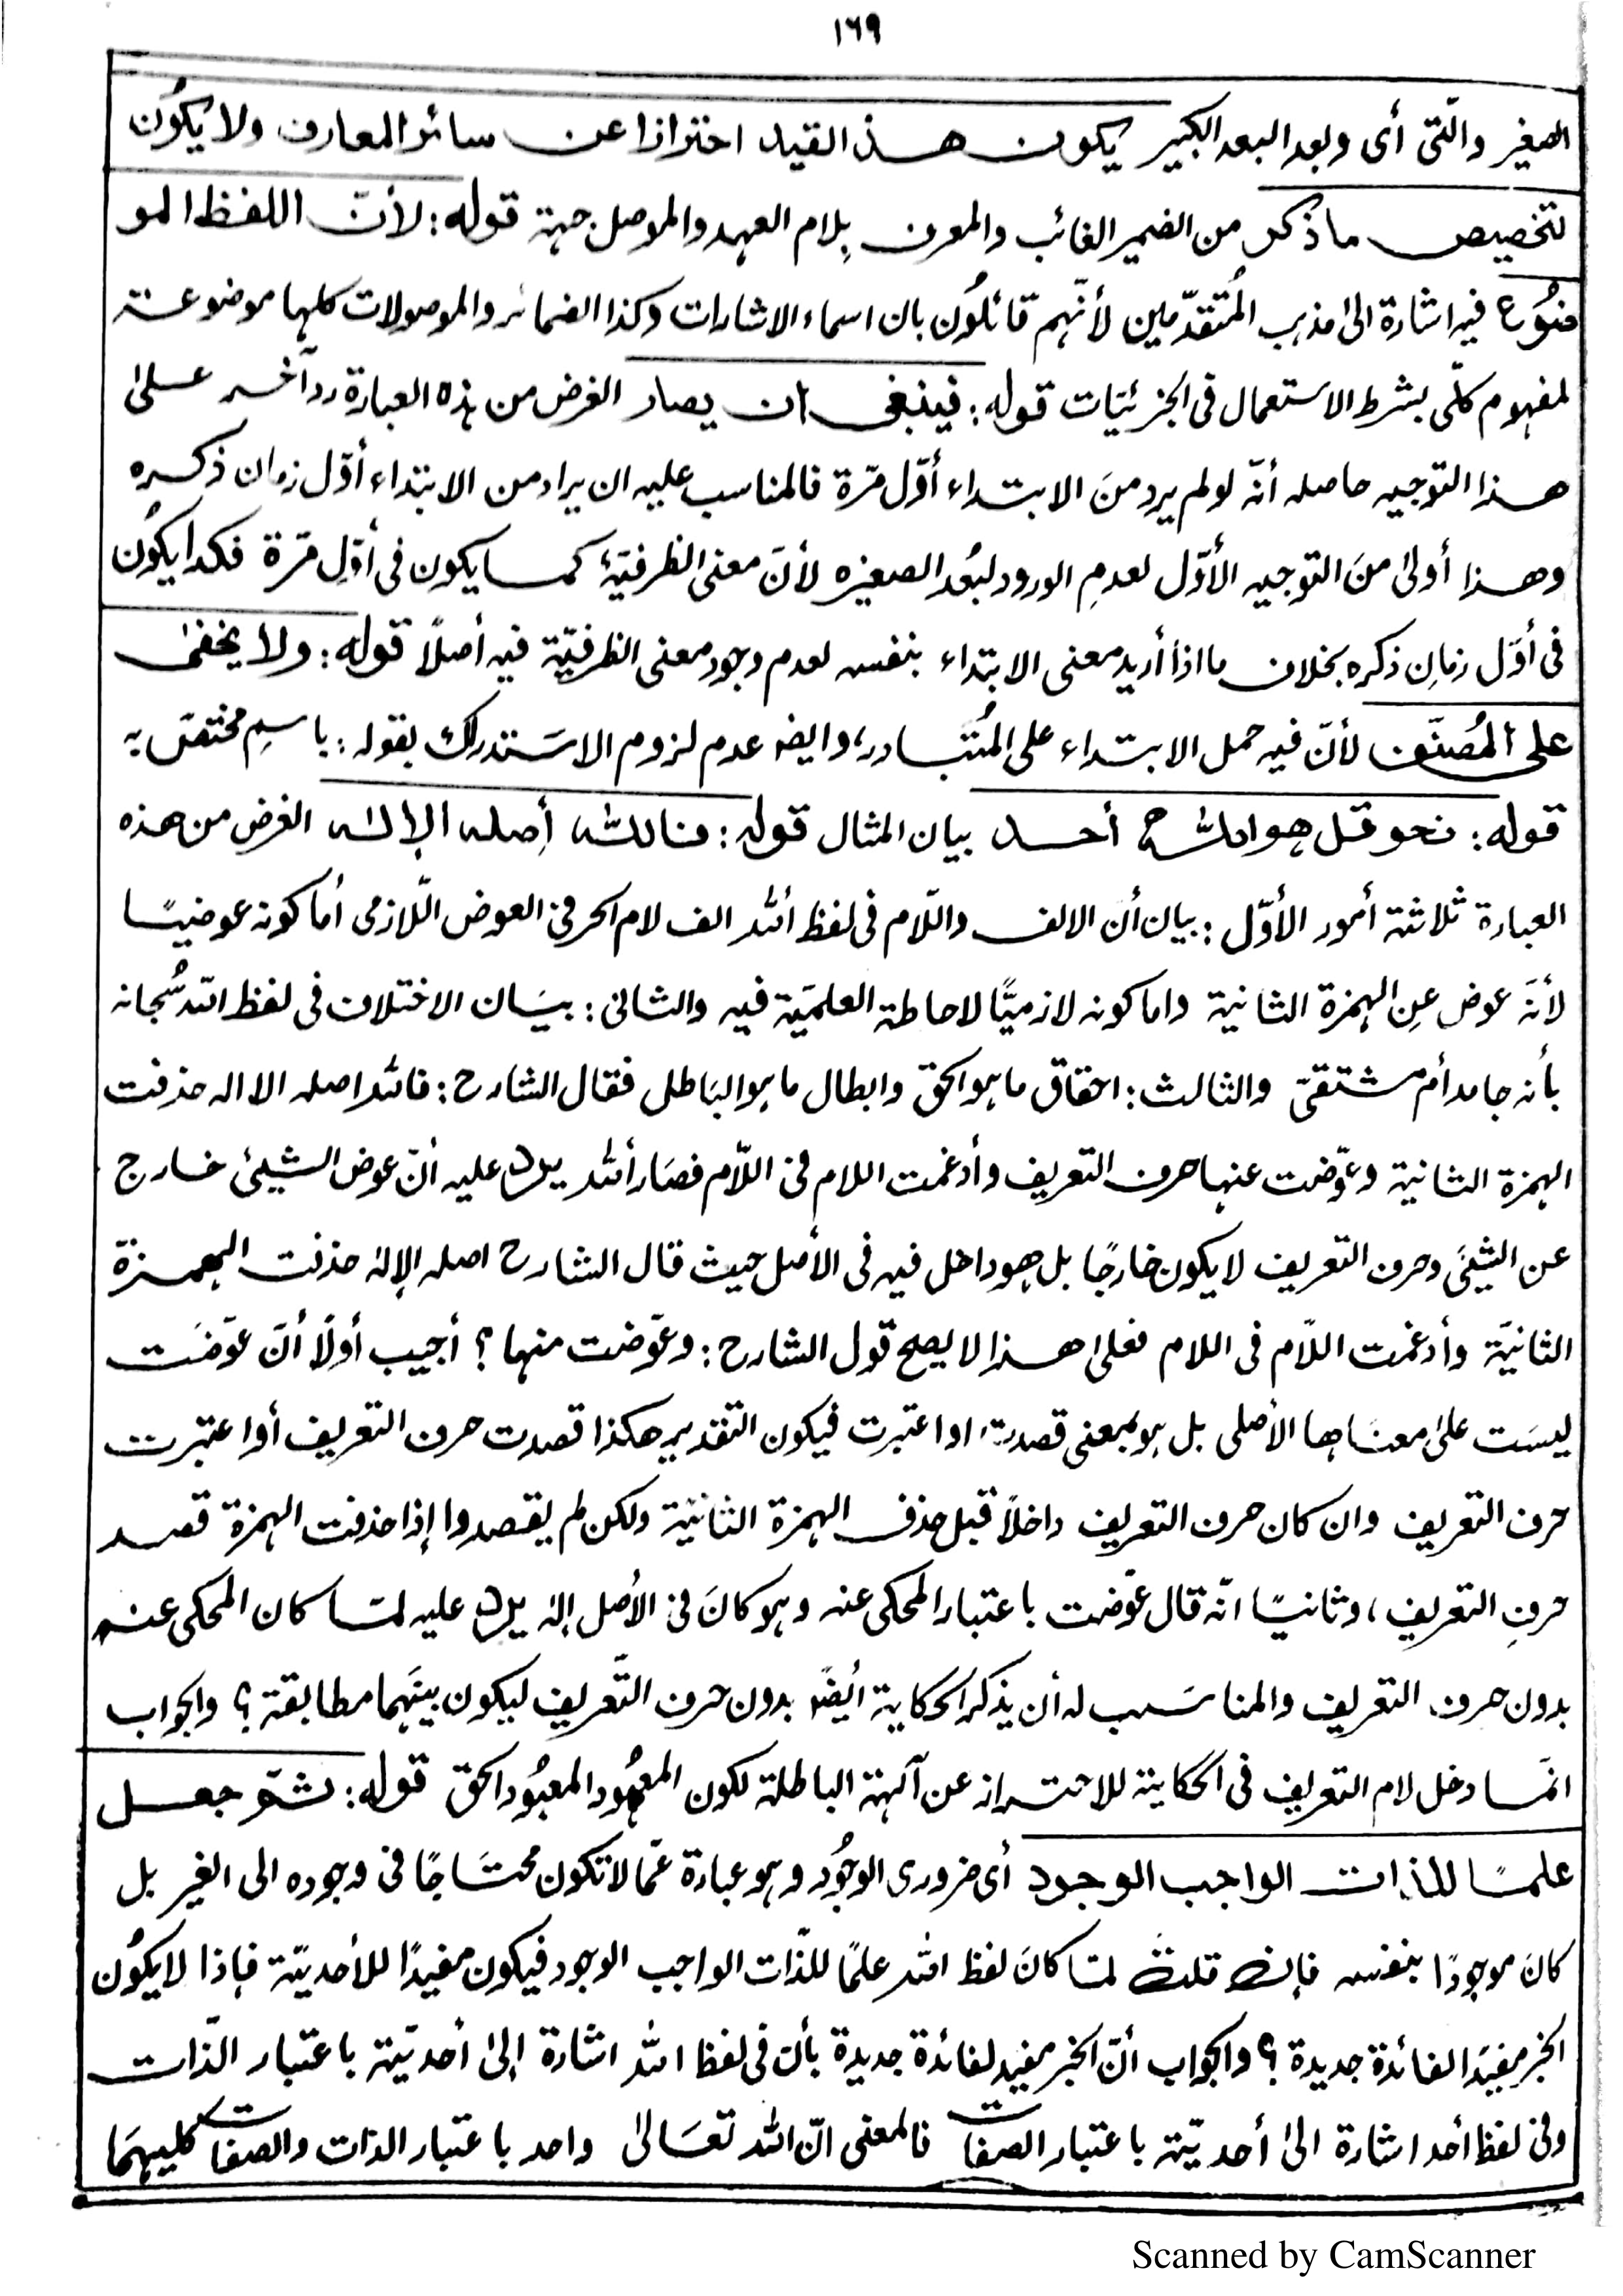 ١٦٩
الصغیر والّتی أی وبعد البعد الکبیر یکون هذ القید احترازا عن سائر المعارف ولا یکُون
لتخصیص ما ذکر من الضمیر الغائب والمعرف بِلام العهد والموصل جهة قوله: لأنّ اللفظ المو
ضُوع فیه اشارة الیٰ مذهب المُتقدّمین لأنّهم قائلُون بان اسماء الاشارات وکذا الضمائر والموصولات کلها موضوعة
لمفهوم کلّی بشرط الاستعمال فی الجزئیّات قوله: فینبغی ان یصار الغرض من هذه العبارة ردآخر علیٰ
هذا التوجیه حاصله أنّه لو لم یرد منَ الابتداء أوّل مرّة فالمناسب علیه ان یراد من الابتداء أوّل زمان ذکره
وهذا أولیٰ منَ التوجیه الأوّل لعدمِ الورود لبُعد الصغیرہ لأنّ معنی الظرفیّة کما یکون فی أوّلِ مرّة فکذا یکُون
فی أوّل زمانِ ذکره بخلاف ما اذا أرید معنی الابتداء بنفسه لعدم وجود معنی الظرفیّة فیه أصلًا قوله: ولا یخفیٰ
علی المُصنّف لأنّ فیه حمل الابتداء علی المُتبادر، وایضاً عدم لزوم الاسَتدرک بقوله: باسمِ مختصّ به
قوله: نحو قل هو الله أحد بیان المثال قوله: فالله أصله الإلٰه الغرض من هذه
العبارة ثلاثة أمور الأوّل: بیان أن الالف واللّام فی لفظ اُلله الف لام الحرفی العوض اللّازمی أما کونه عوضیًا
لأنّه عوض عنِ الهمزة الثانیة واما کونه لازمیًّا لاحاطة العلمیّة فیه والثانی: بیَان الاختلاف فی لفظ الله سُبحانه
بأنه جامد أم مشتقّ والثالث: احقاق ما هو الحق وابطال ما هو البَاطل فقال الشارح: فالله اصله الا اله حذفت
الهمزة الثانیة وعوّضت عنها حرف التعریف وأدغمت اللام فی اللّام فصَار ألله یرد علیه أنّ عوض الشیئ خارج
عن الشیئَ وحرف التعریف لا یکون خارجًا بل هو داخل فیه فی الأصل حیث قال الشارح اصله الإلٰه حذفت الهمزة
الثانیَة وأدغمت اللّام فی اللام فعلیٰ هذا لا یصلح قول الشارح: وعوّضت منها؟ أجیب أولًا أنّ عوّضَت
لیسَت علیٰ معنَاها الأصلی بل هو بمعنی قصدت، او اعتبرت فیکون التقدیر هکذا قصدت حرف التعریف أوا عتبرت
حرف التعریف وان کان حرف التعریف داخلاً قبل حذف الهمزة الثانیّة ولکن لم یقصدوا إذا حذفت الهمزة قصد
حرفِ التعریف، وثانیًا انّه قال عوّضت باعتبار المحکی عنه وهو کانَ فی الأصل إلٰه یرد علیه لمّا کان المحکی عنه
بدون حرف التعریف والمناسَب له أن یذکر الحکایة أیضًا بدون حرف التّعریف لیکون بینَهما مطابقة؟ والجواب
انّما دخل لام التعریف فی الحکایة للاحتراز عن آلهة الباطلة لکون المعهُود المعبُود الحق قوله: ثم جعل
علمًا للذات الواجب الوجود أی ضروری الوجُود وهو عبارة عمّا لا تکون محتَاجًا فی وجوده الی الغیر بل
کانَ موجودًا بنفسه فإن قلت لمّا کانَ لفظ الله علمًا للذّات الواجب الوجود فیکون مفیدًا للأحدیّة فإذا لا یکُون
الخبر مفیدَا لفائدة جدیدة؟ والجواب أنّ الخبر مفید لفائدة جدیدة بأن فی لفظ الله اشارة إلیٰ أحدیّة باعتبار الذّات
وفی لفظ أحد اشارة الیٰ أحدیّة باعتبار الصفات فالمعنی انّ الله تعَالیٰ واحد باعتبار الذات والصفات کلیهمَا
Scanned by CamScanner